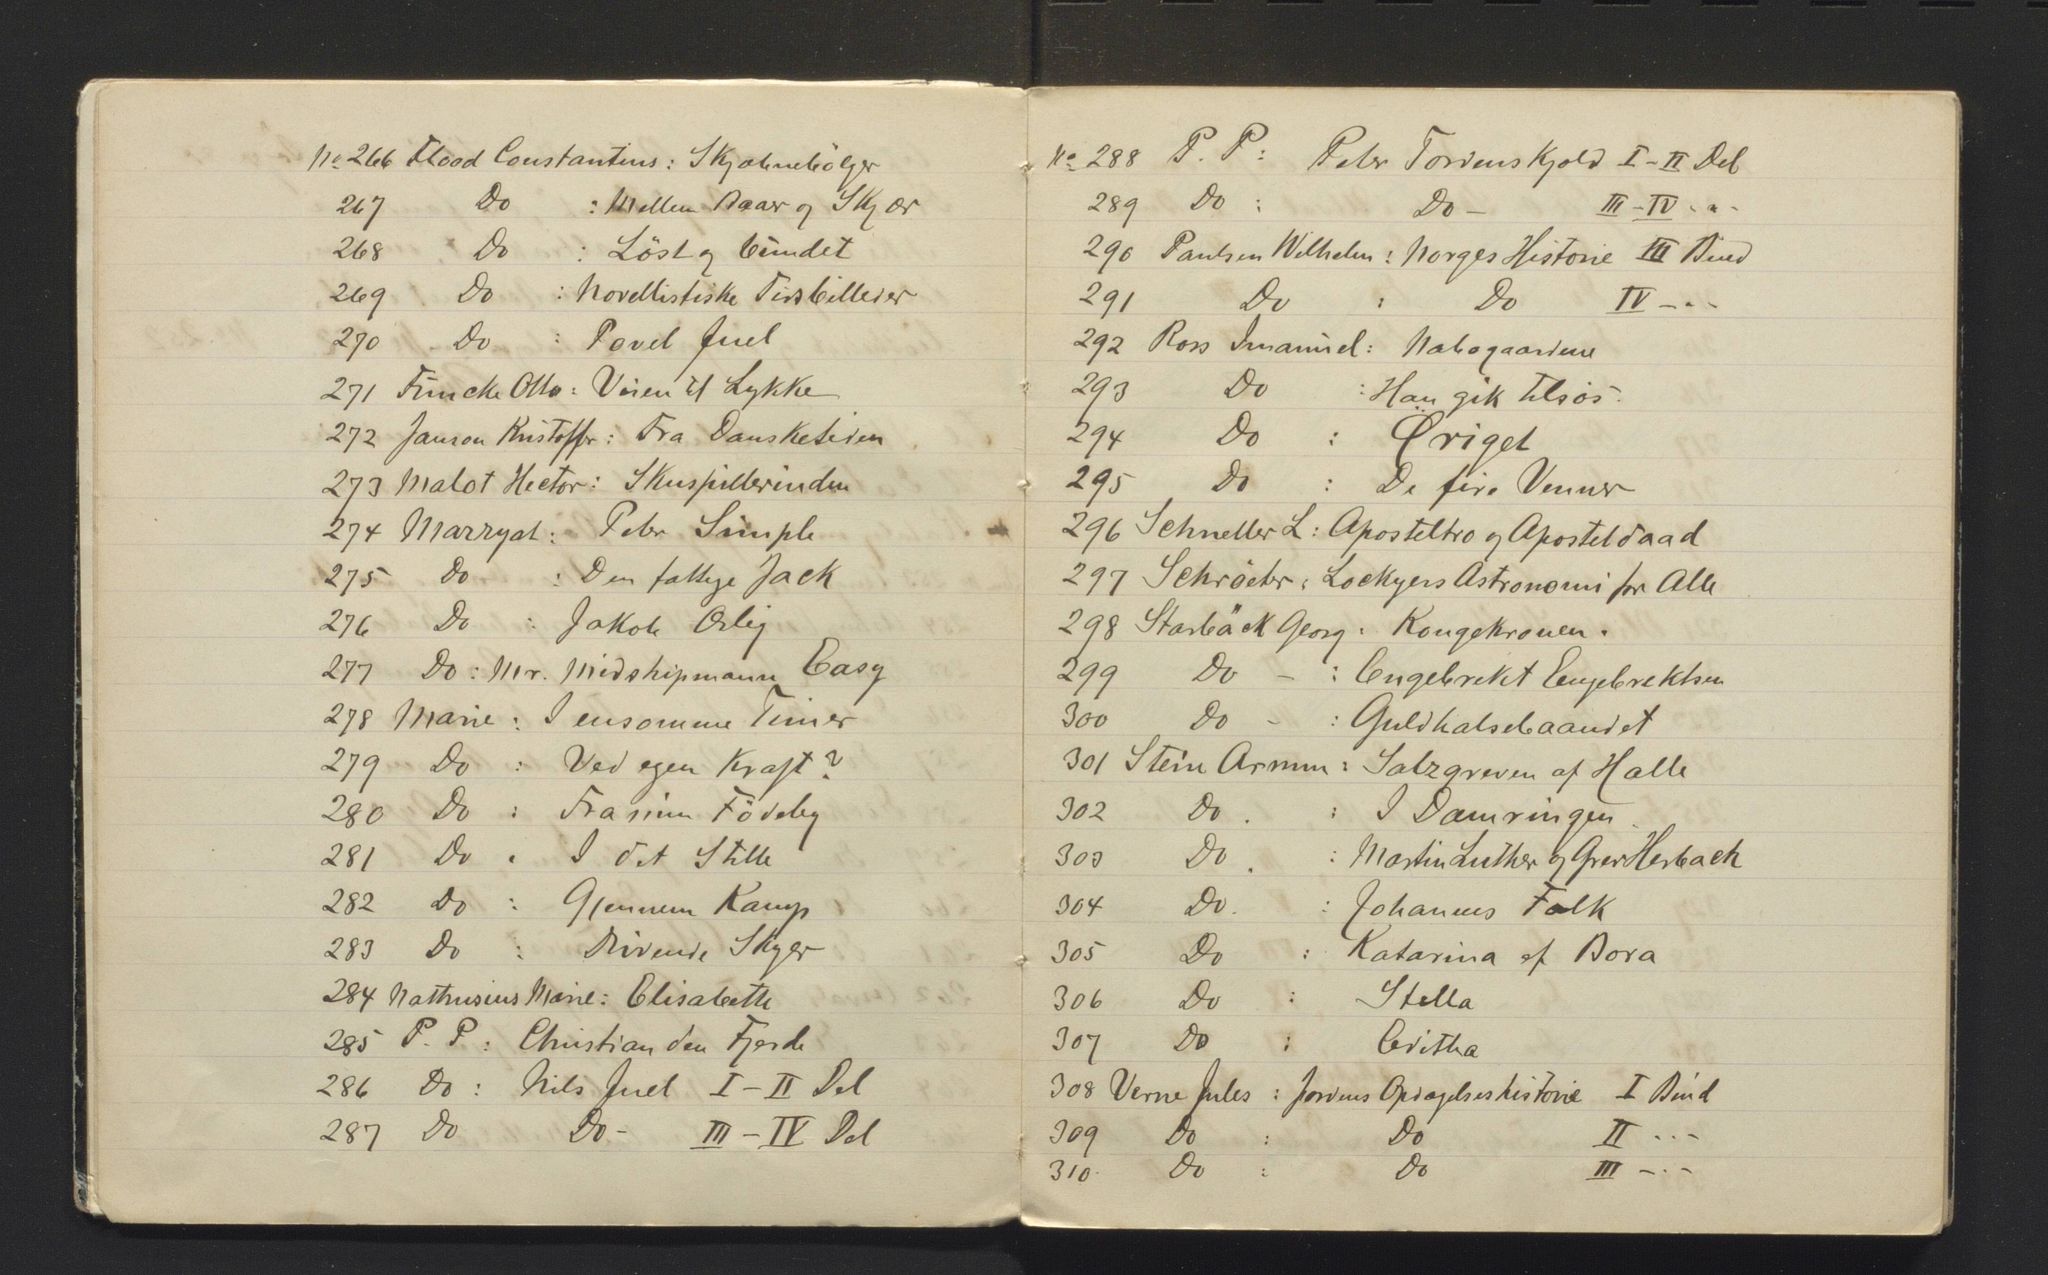 No 266 Flood Constantius: Skjæbnebölger
267 Do : Mellem Baaer og Skjær
268 Do : Löst og bundet
269 Do : Novellistiske Tidsbilleder
270 Do : Povel Juel
271 Funcke Otto: Veien til Lykke
272 Janson Kristoffer: Fra Dansketiden
273 Malot Hector: Skuespillerinden
274 Marryat: Peter Simple
275 Do : Den fattige Jack
276 Do : Jakob Ærlig
277 Do : Mr. Midshipmann Easy
278 Marie: I ensomme Timer
279 Do : Ved egen Kraft?
280 Do : Fra min Födeby
281 Do : I det Stille
282 Do : Gjennem Kamp
283 Do : Drivende Skyer
284 Nathusius Marie: Elisabeth
285 P. P: Christian den Fjerde
286 Do : Nils Juel I - II Del
287 Do Do - III - IV Del
No 288 P. P: Peter Tordenskjold I - II Del
289 Do : Do - III - IV - " -
290 Paulsen Wilhelm: Norges Historie III Bind
291 Do : Do IV - " -
292 Ross Imanuel: Nabogaardene
293 Do : Han gik tilsös.
294 Do : Öriget
295 Do : De fire Venner
296 Schneller L: Aposteltro og Aposteldaad
297 Schröter: Lockyers Astronomi for Alle
298 Starbäck Georg: Kongekronen.
299 Do - : Engebrekt Engebrektsen
300 Do - : Guldhalsebaandet
301 Stein Armin: Salzgreven af Halle
302 Do . : I Dæmringen
303 Do . : Martin Luther og Grev Herback
304 Do . : Johannes Falk
305 Do : Katarina af Bora
306 Do : Stella
307 Do : Editha
308 Verne Jules: Jordens Opdagelseshistorie I Bind
309 Do : Do II - " -
310 Do : Do III - " -